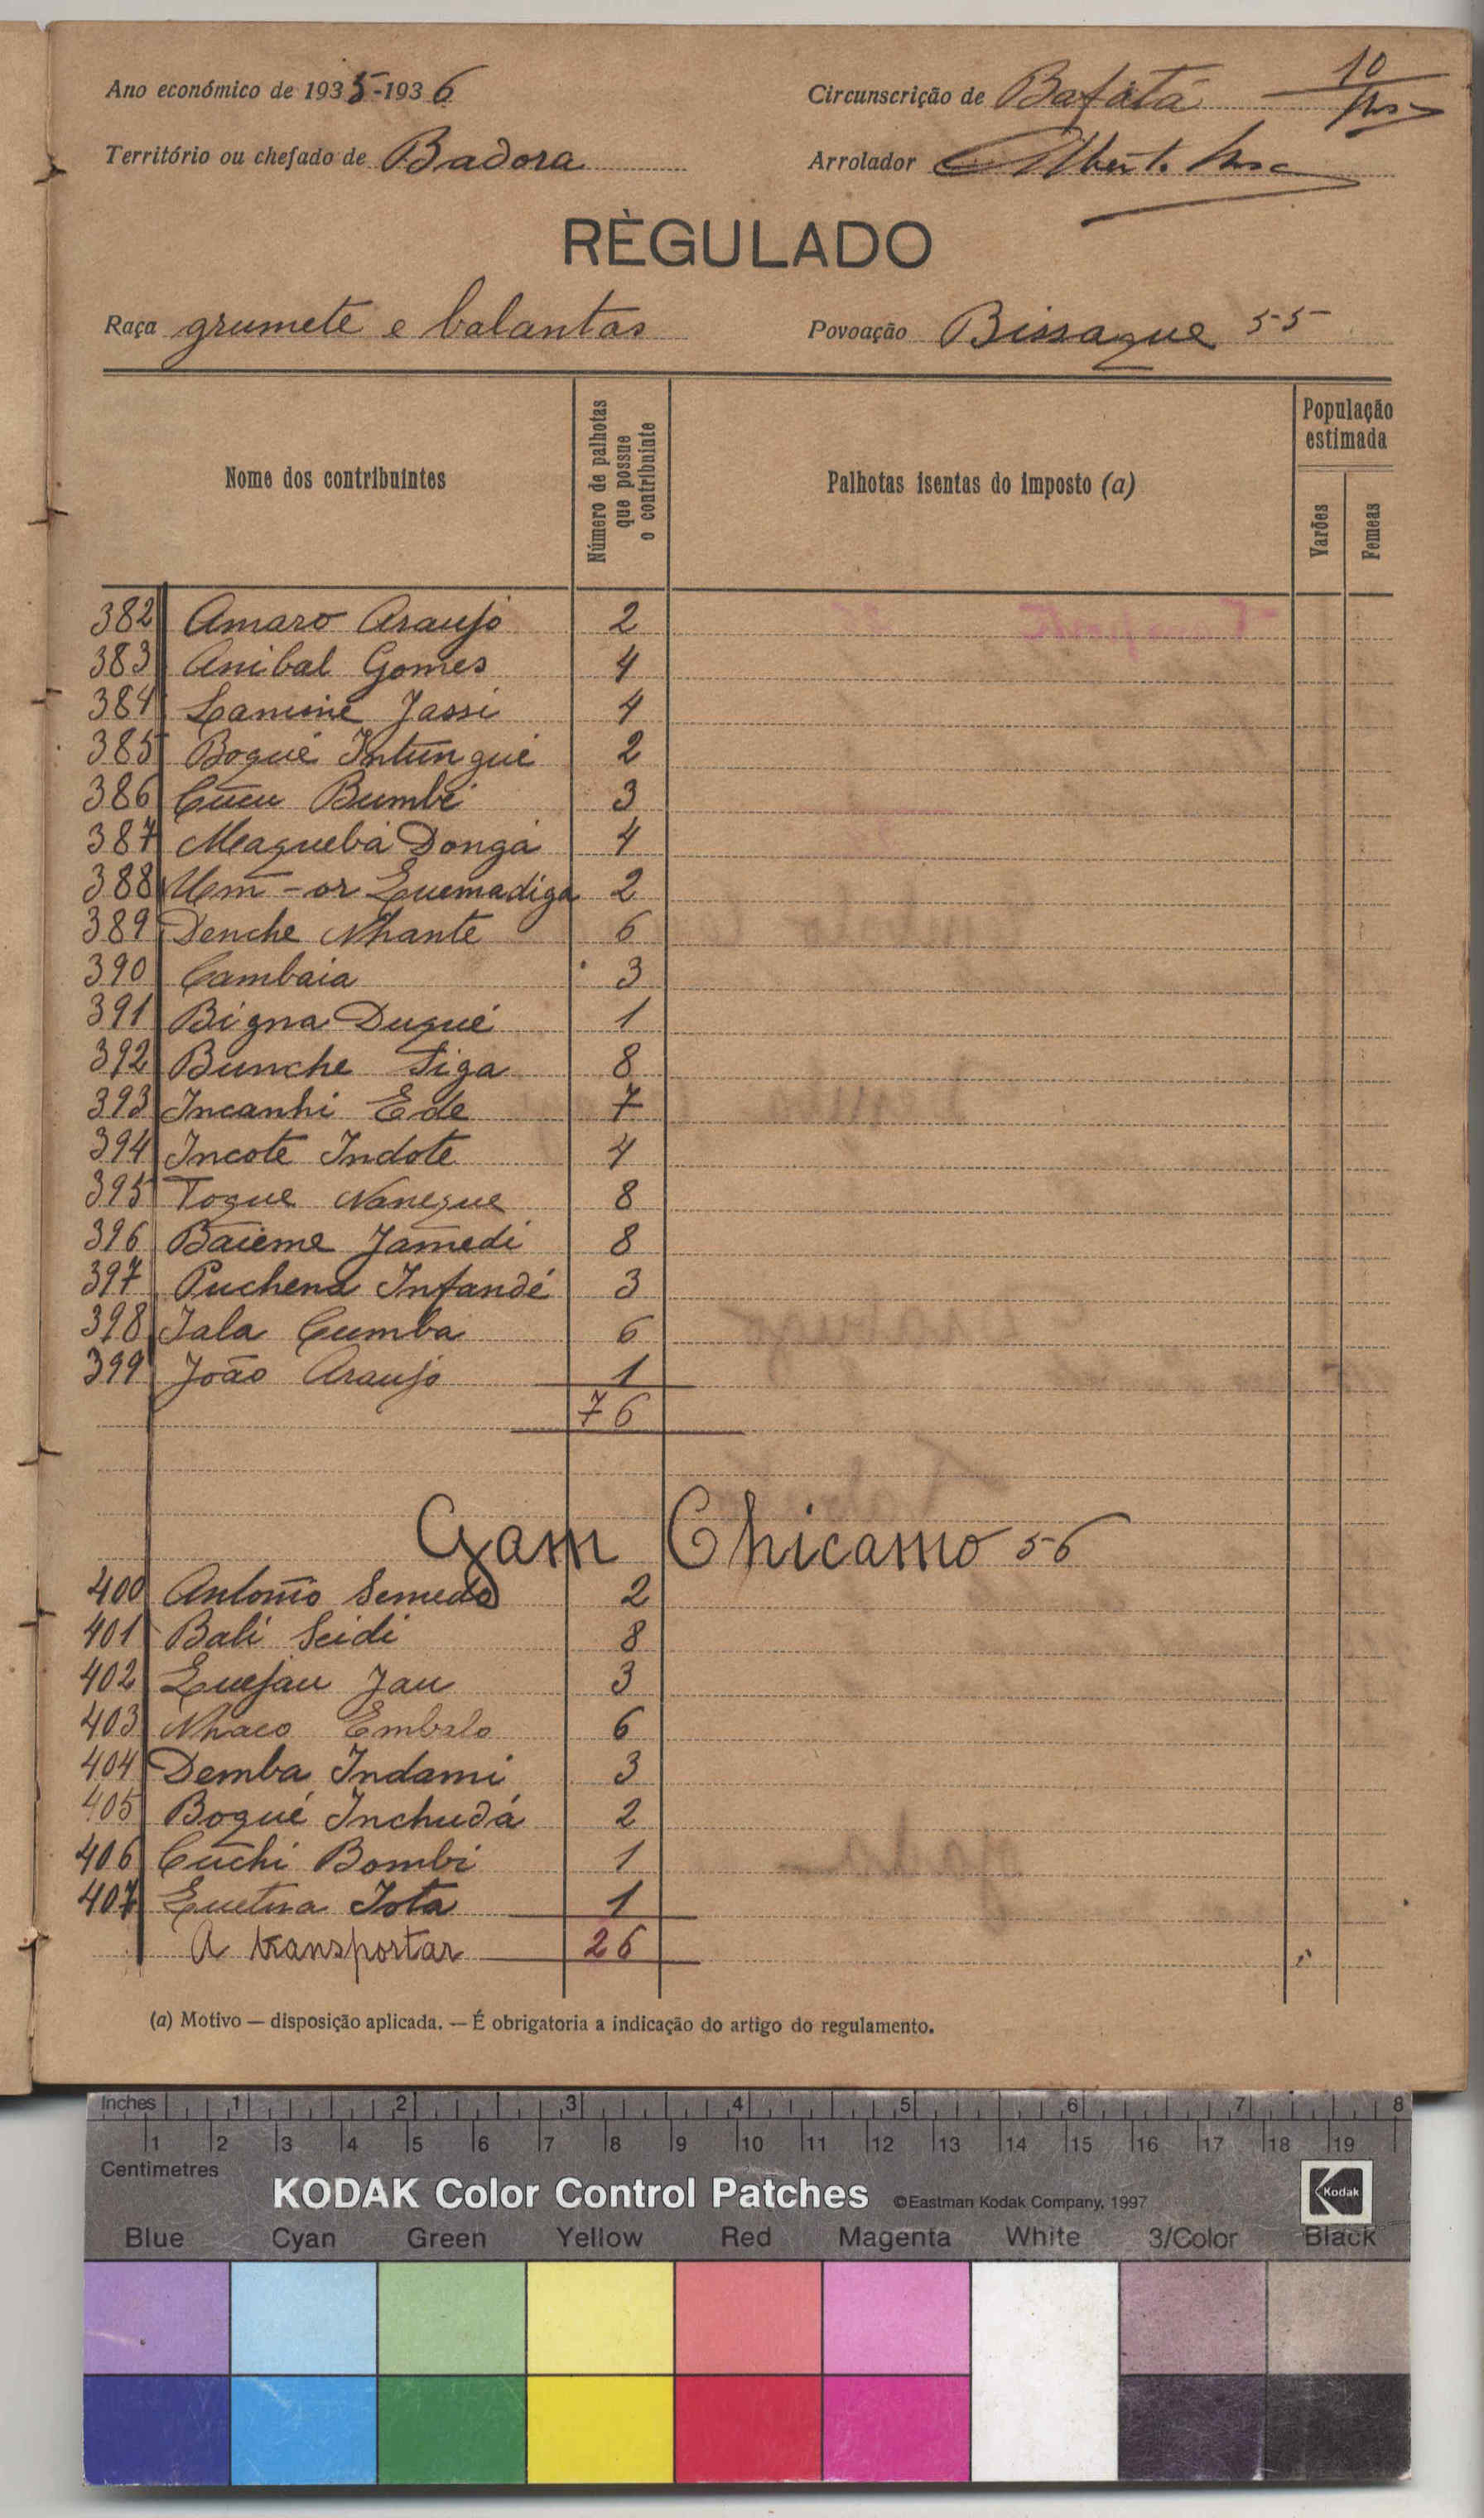 Ano económico de 1935-1936
Circunscrição de Bafatá
10
Território ou chefado de Badora
Arrolador Alberto
RÈGULADO
Raça grumete e balantas
Povoação Bissaque 55
Nome dos contribuintes
Número de palhotas que possue o contribuinte
Palhotas isentas do imposto (a)
População estimada
Varões
Femeas
382 Amaro Araujo 2
383 Anibal Gomes 4
384 Lamine Jassi 4
385 Boqué Intungué 2
386 Cucu Bumbi 3
387 Maquebá Dongá 4
388 2
389 Denche Nhante 6
390 Cambaia 3
391 Bigna Duqué 1
392 Bunche Siga 8
393 Incanhi Ede 7
394 Incote Indote 4
395 Toque Naneque 8
396 Baieme Jamedi 8
397 Puchena Infandé 3
398 Jala Cumba 6
399 João Araujo 1
76
Gam Chicamo 56
400 Antonio Semedo 2
401 Bali Seidi 8
402 Quejau Jau 3
403 Nhaco Embalo 6
404 Demba Indami 3
405 Boqué Inchudá 2
406 Cuchi Bombi 1
407 1
A transportar 26
(a) Motivo — disposição aplicada. — É obrigatoria a indicação do artigo do regulamento.
Inches 1 2 3 4 5 6 7 8
1 2 3 4 5 6 7 8 9 10 11 12 13 14 15 16 17 18 19
Centimetres
KODAK Color Control Patches ©Eastman Kodak Company, 1997 Kodak
Blue Cyan Green Yellow Red Magenta White 3/Color Black